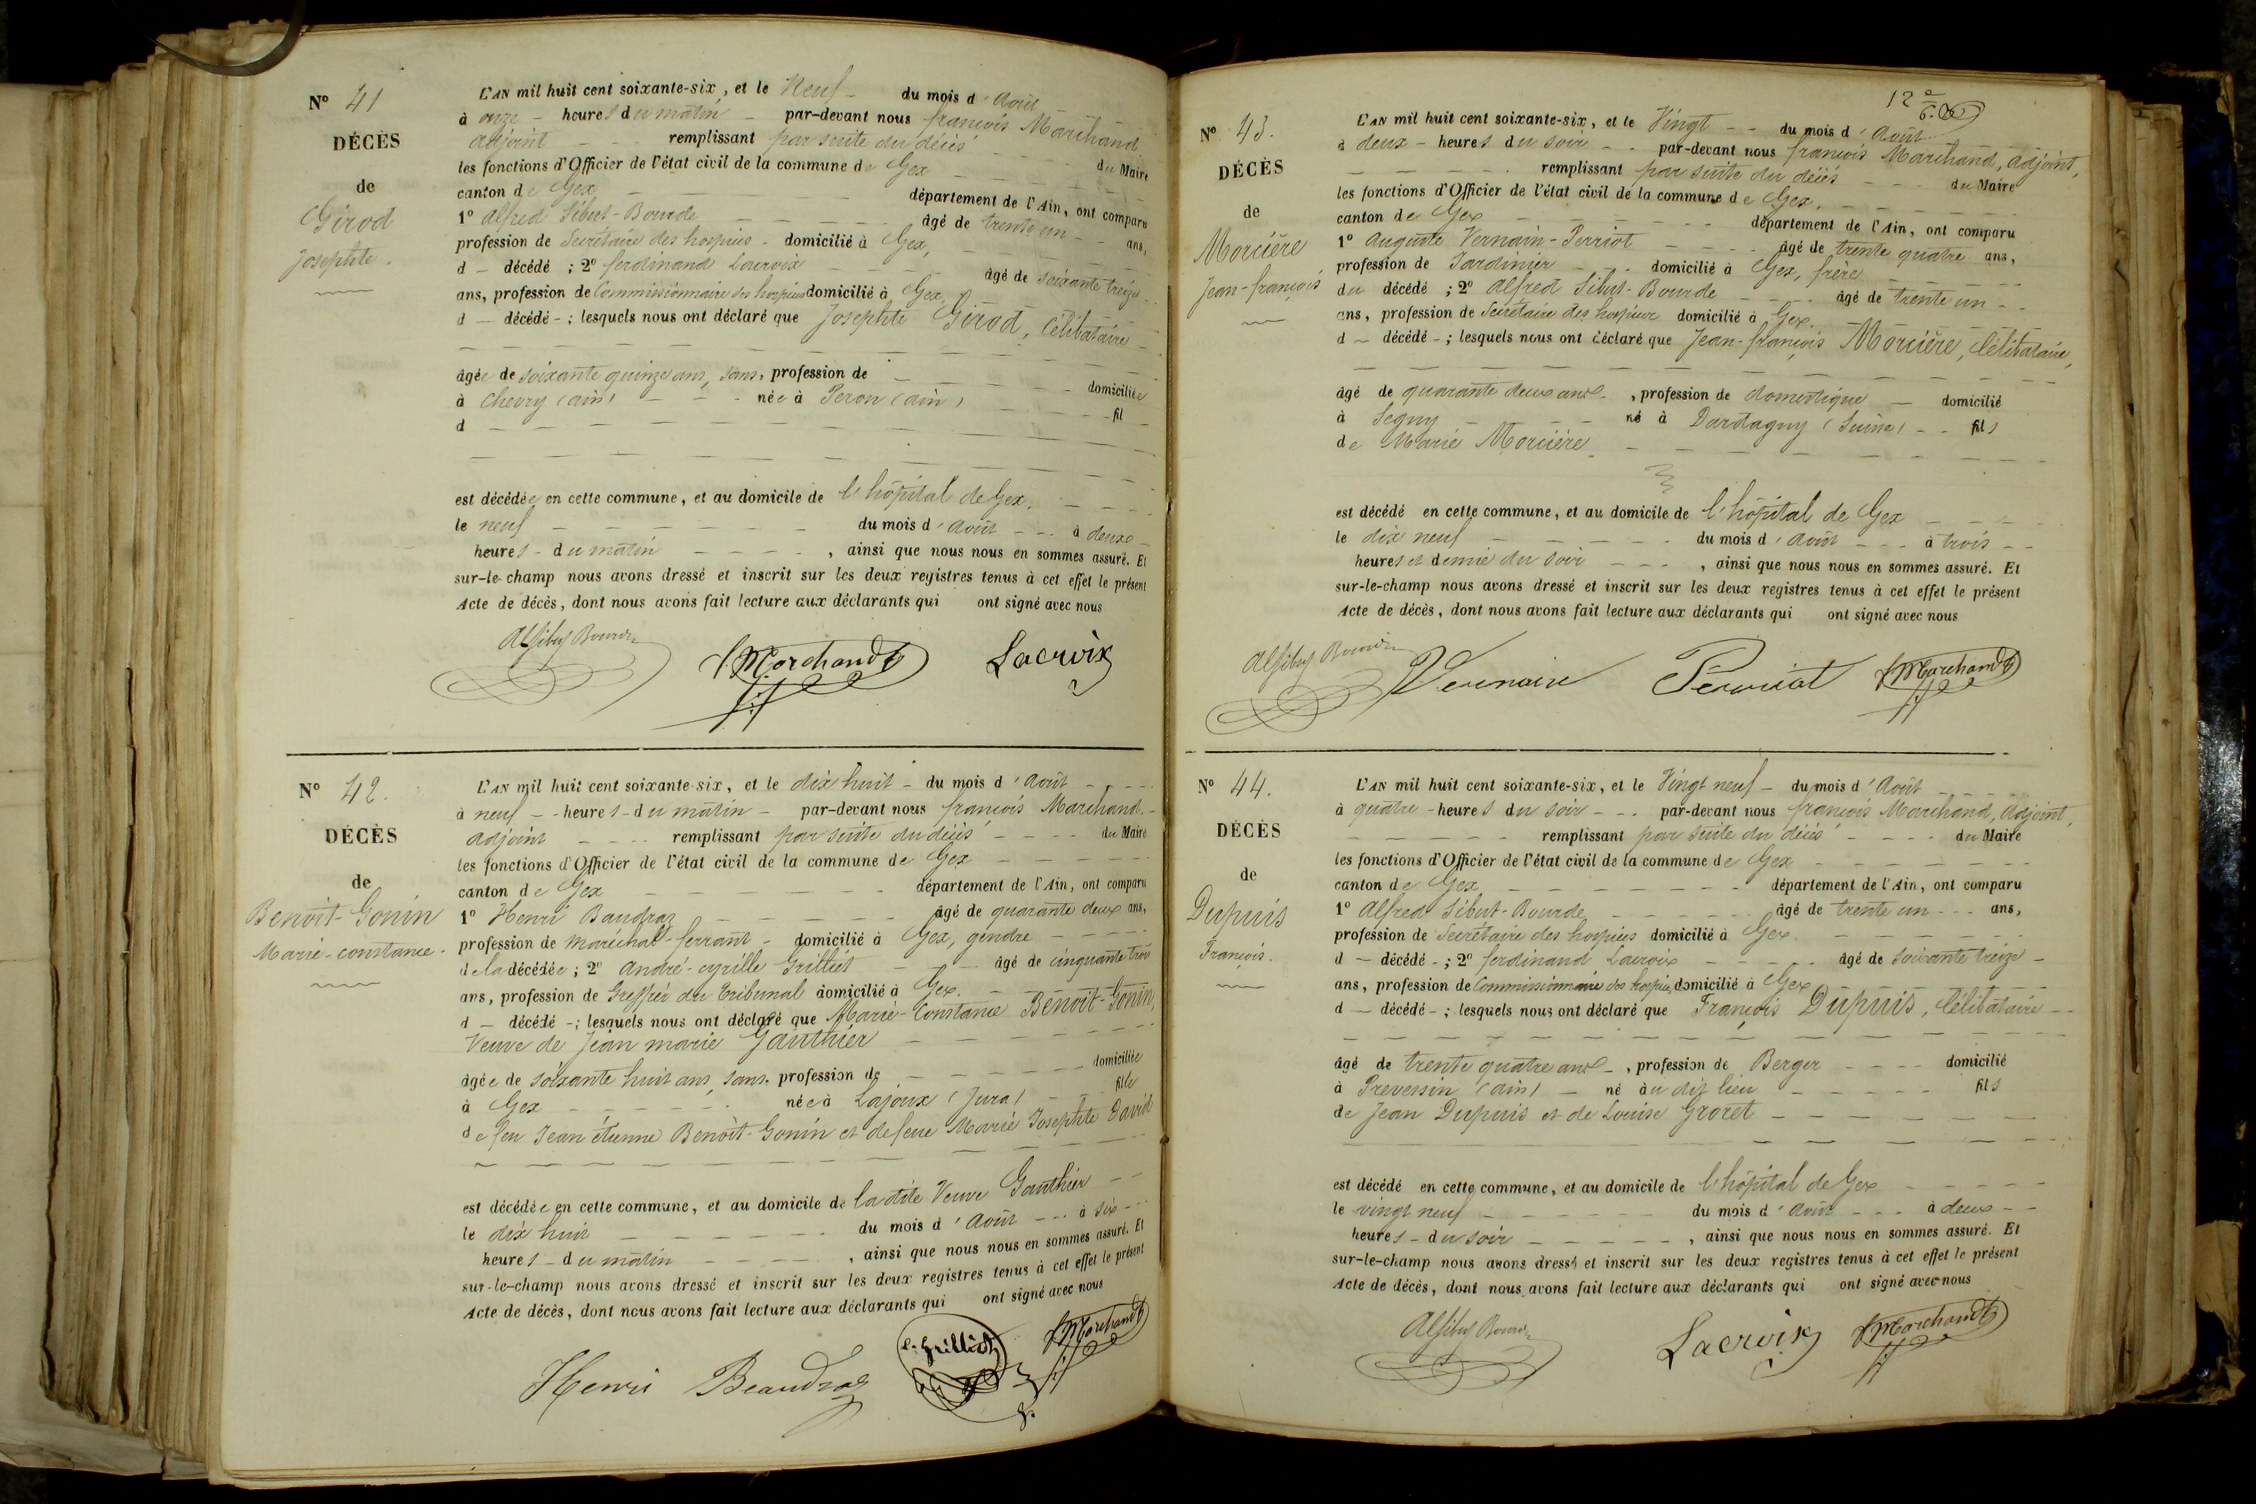 Nº 41
DÉCÈS
de
Girod
Josephte.
L'AN mil huit cent soixante-six, et le Neuf - du mois d'Août
à onze - heures du matin - par-devant nous françois Marchand
adjoint - - - remplissant par suite du décès - - - - du Maire
les fonctions d'Officier de l'état civil de la commune de Gex
canton de Gex - - - département de l'Ain, ont comparu
1º alfred Sibut-Bourde - - - - âgé de trente un - - ans,
profession de Secrétaire des hospices - domicilié à Gex,
d - décédé ; 2º ferdinand Lacroix - - - - âgé de soixante treize
ans, profession de Commissionnaire des hospices domicilié à Gex,
d - décédé - ; lesquels nous ont déclaré que Josephte Girod, Célibataire
âgée de soixante quinze ans, sans, profession de - - - - domiciliée
à Chevry (ain) - - - née à Peron (ain) - - - fil
d
est décédée en cette commune, et au domicile de l'hôpital de Gex.
le neuf - - - - - du mois d'août - - - à deux -
heures - du matin - - - - , ainsi que nous nous en sommes assuré. Et
sur-le-champ nous avons dressé et inscrit sur les deux registres tenus à cet effet le présent
Acte de décès, dont nous avons fait lecture aux déclarants qui ont signé avec nous
ASibut Bourde F Marchand Lacroix
Nº 42.
DÉCÈS
de
Benoit-Gonin
Marie-constance.
L'AN mil huit cent soixante-six, et le dix huit - du mois d'Août - - -
à neuf - - heures - du matin - par-devant nous françois Marchand -
adjoint - - - - remplissant par suite du décès - - - - du Maire
les fonctions d'Officier de l'état civil de la commune de Gex
canton de Gex - - - - - département de l'Ain, ont comparu
1º Henri Baudraz - - - - - âgé de quarante deux ans,
profession de maréchal-ferrant - domicilié à Gex, gendre - - - -
de la décédée ; 2º André-cyrille Grilliet - - - âgé de cinquante trois
ans, profession de Greffier du Tribunal domicilié à Gex.
d - décédé - ; lesquels nous ont déclaré que Marie-Constance Benoit-Gonin,
Veuve de Jean marie Gauthier
âgée de soixante huit ans, sans, profession de - - - - domiciliée
à Gex - - - - - née à Lajoux (Jura) - - fille
de feu Jean étienne Benoît-Gonin et de feue Marie Josephte David
est décédée en cette commune, et au domicile de la dite Veuve Gauthier - -
le dix huit - - - - - du mois d'Août - - - à six - - -
heures - du matin - - - - , ainsi que nous nous en sommes assuré. Et
sur-le-champ nous avons dressé et inscrit sur les deux registres tenus à cet effet le présent
Acte de décès, dont nous avons fait lecture aux déclarants qui ont signé avec nous
Henri Beaudraz C. Grilliet F Marchand
12
Nº 43.
DÉCÈS
de
Morcière
Jean-françois
L'AN mil huit cent soixante-six, et le Vingt - - du mois d'Août
à deux - heures du soir - - par-devant nous françois Marchand, adjoint,
remplissant par suite du décès - - - du Maire
les fonctions d'Officier de l'état civil de la commune de Gex.
canton de Gex - - - - - département de l'Ain, ont comparu
1º Auguste Vernain-Perriot - - - - âgé de trente quatre ans,
profession de Jardinier - - - domicilié à Gex, frère
du décédé ; 2º Alfred Sibut-Bourde - - - âgé de trente un - -
ans, profession de Secrétaire des hospices domicilié à Gex.
d - décédé - ; lesquels nous ont déclaré que Jean-françois Morcière, Célibataire,
âgé de quarante deux ans - , profession de domestique - domicilié
à Segny - - - - né à Dardagny (Suisse) - - fils
de Marie Morcière.
est décédé en cette commune, et au domicile de l'hôpital de Gex
le dix neuf - - - - - du mois d'août - - - à trois - -
heures et demie du soir - - - , ainsi que nous nous en sommes assuré. Et
sur-le-champ nous avons dressé et inscrit sur les deux registres tenus à cet effet le présent
Acte de décès, dont nous avons fait lecture aux déclarants qui ont signé avec nous
ASibut Bourde Vernain Perriot F Marchand
Nº 44.
DÉCÈS
de
Dupuis
François.
L'AN mil huit cent soixante-six, et le Vingt neuf - du mois d'Août
à quatre - heures du soir - - - par-devant nous françois Marchand, Adjoint,
remplissant par suite du décès - - - - du Maire
les fonctions d'Officier de l'état civil de la commune de Gex
canton de Gex - - - - - - département de l'Ain, ont comparu
1º Alfred Sibut-Bourde - - - - âgé de trente un - - - ans,
profession de Secrétaire des hospices domicilié à Gex.
d - décédé - ; 2º ferdinand Lacroix - - - - - âgé de soixante treize -
ans, profession de Commissionnaire des hospices domicilié à Gex
d - décédé - ; lesquels nous ont déclaré que François Dupuis, Célibataire - -
âgé de trente quatre ans - , profession de Berger - - - - domicilié
à Prevessin (ain) - né au dit lieu - - - - - fils
de Jean Dupuis et de Louise Groret
est décédé en cette commune, et au domicile de l'hôpital de Gex
le vingt neuf - - - - - du mois d'Août - - - à deux - -
heures - du soir - - - - - , ainsi que nous nous en sommes assuré. Et
sur-le-champ nous avons dressé et inscrit sur les deux registres tenus à cet effet le présent
Acte de décès, dont nous avons fait lecture aux déclarants qui ont signé avec nous
ASibut Bourde Lacroix F Marchand